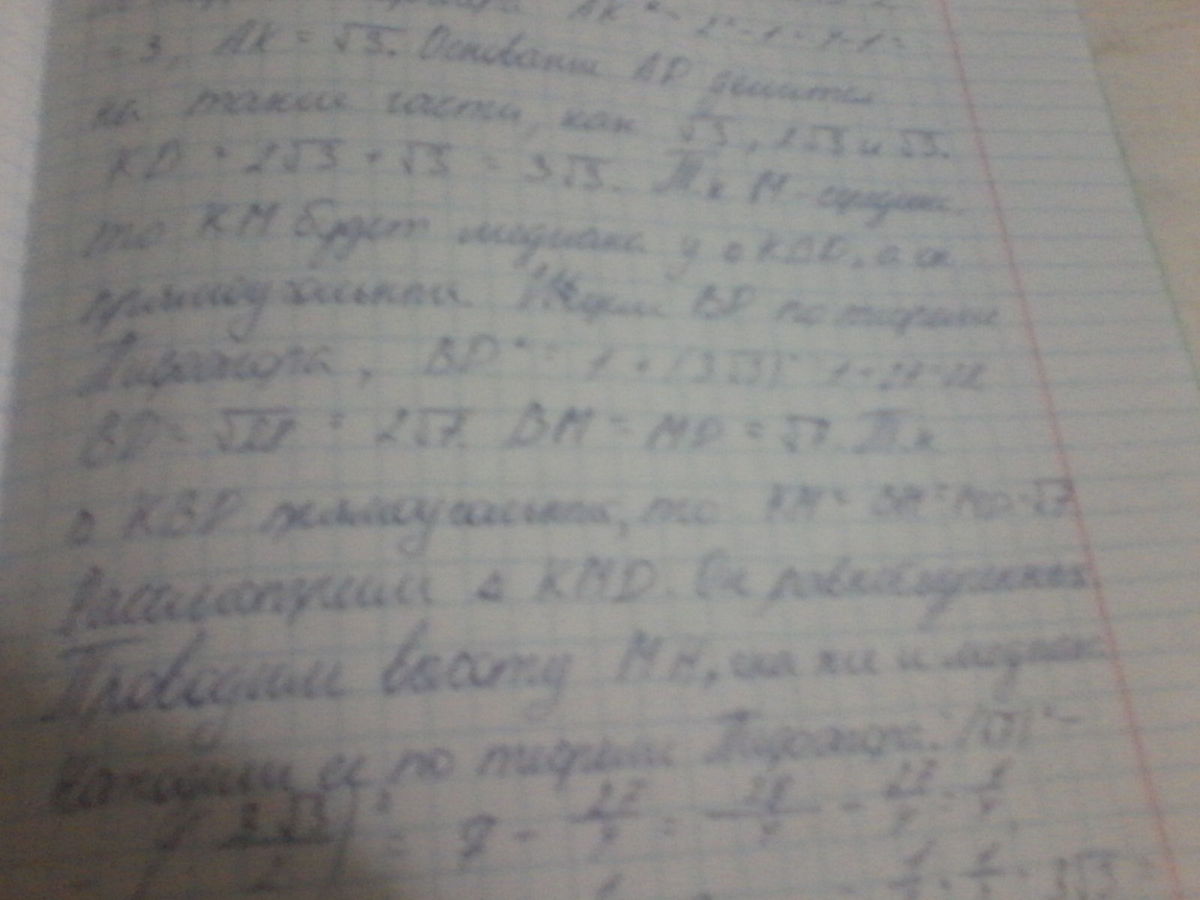 AK² = 2² - 1 = 4 - 1 =
= 3, AK = √3. Основание AD делится
на такие части, как √3, 2√3 и √3.
KD = 2√3 + √3 = 3√3. Т.к M - середина
то KM будет медиана у △KBD, а он
прямоугольный. Ищем BD по теореме
Пифагора, BD² = 1 + (3√3)² = 1 + 27 = 28
BD = √28 = 2√7. BM = MD = √7. Т.к
△ KBD прямоугольный, то KM = BM = MD = √7
Рассмотрим △ KMD. Он равнобедренный.
Проводим высоту MH, она же и медиана
Находим её по теореме Пифагора. (√7)² -
= 7 - 27/4 = 28/4 - 27/4 = 1/4
3√3 =